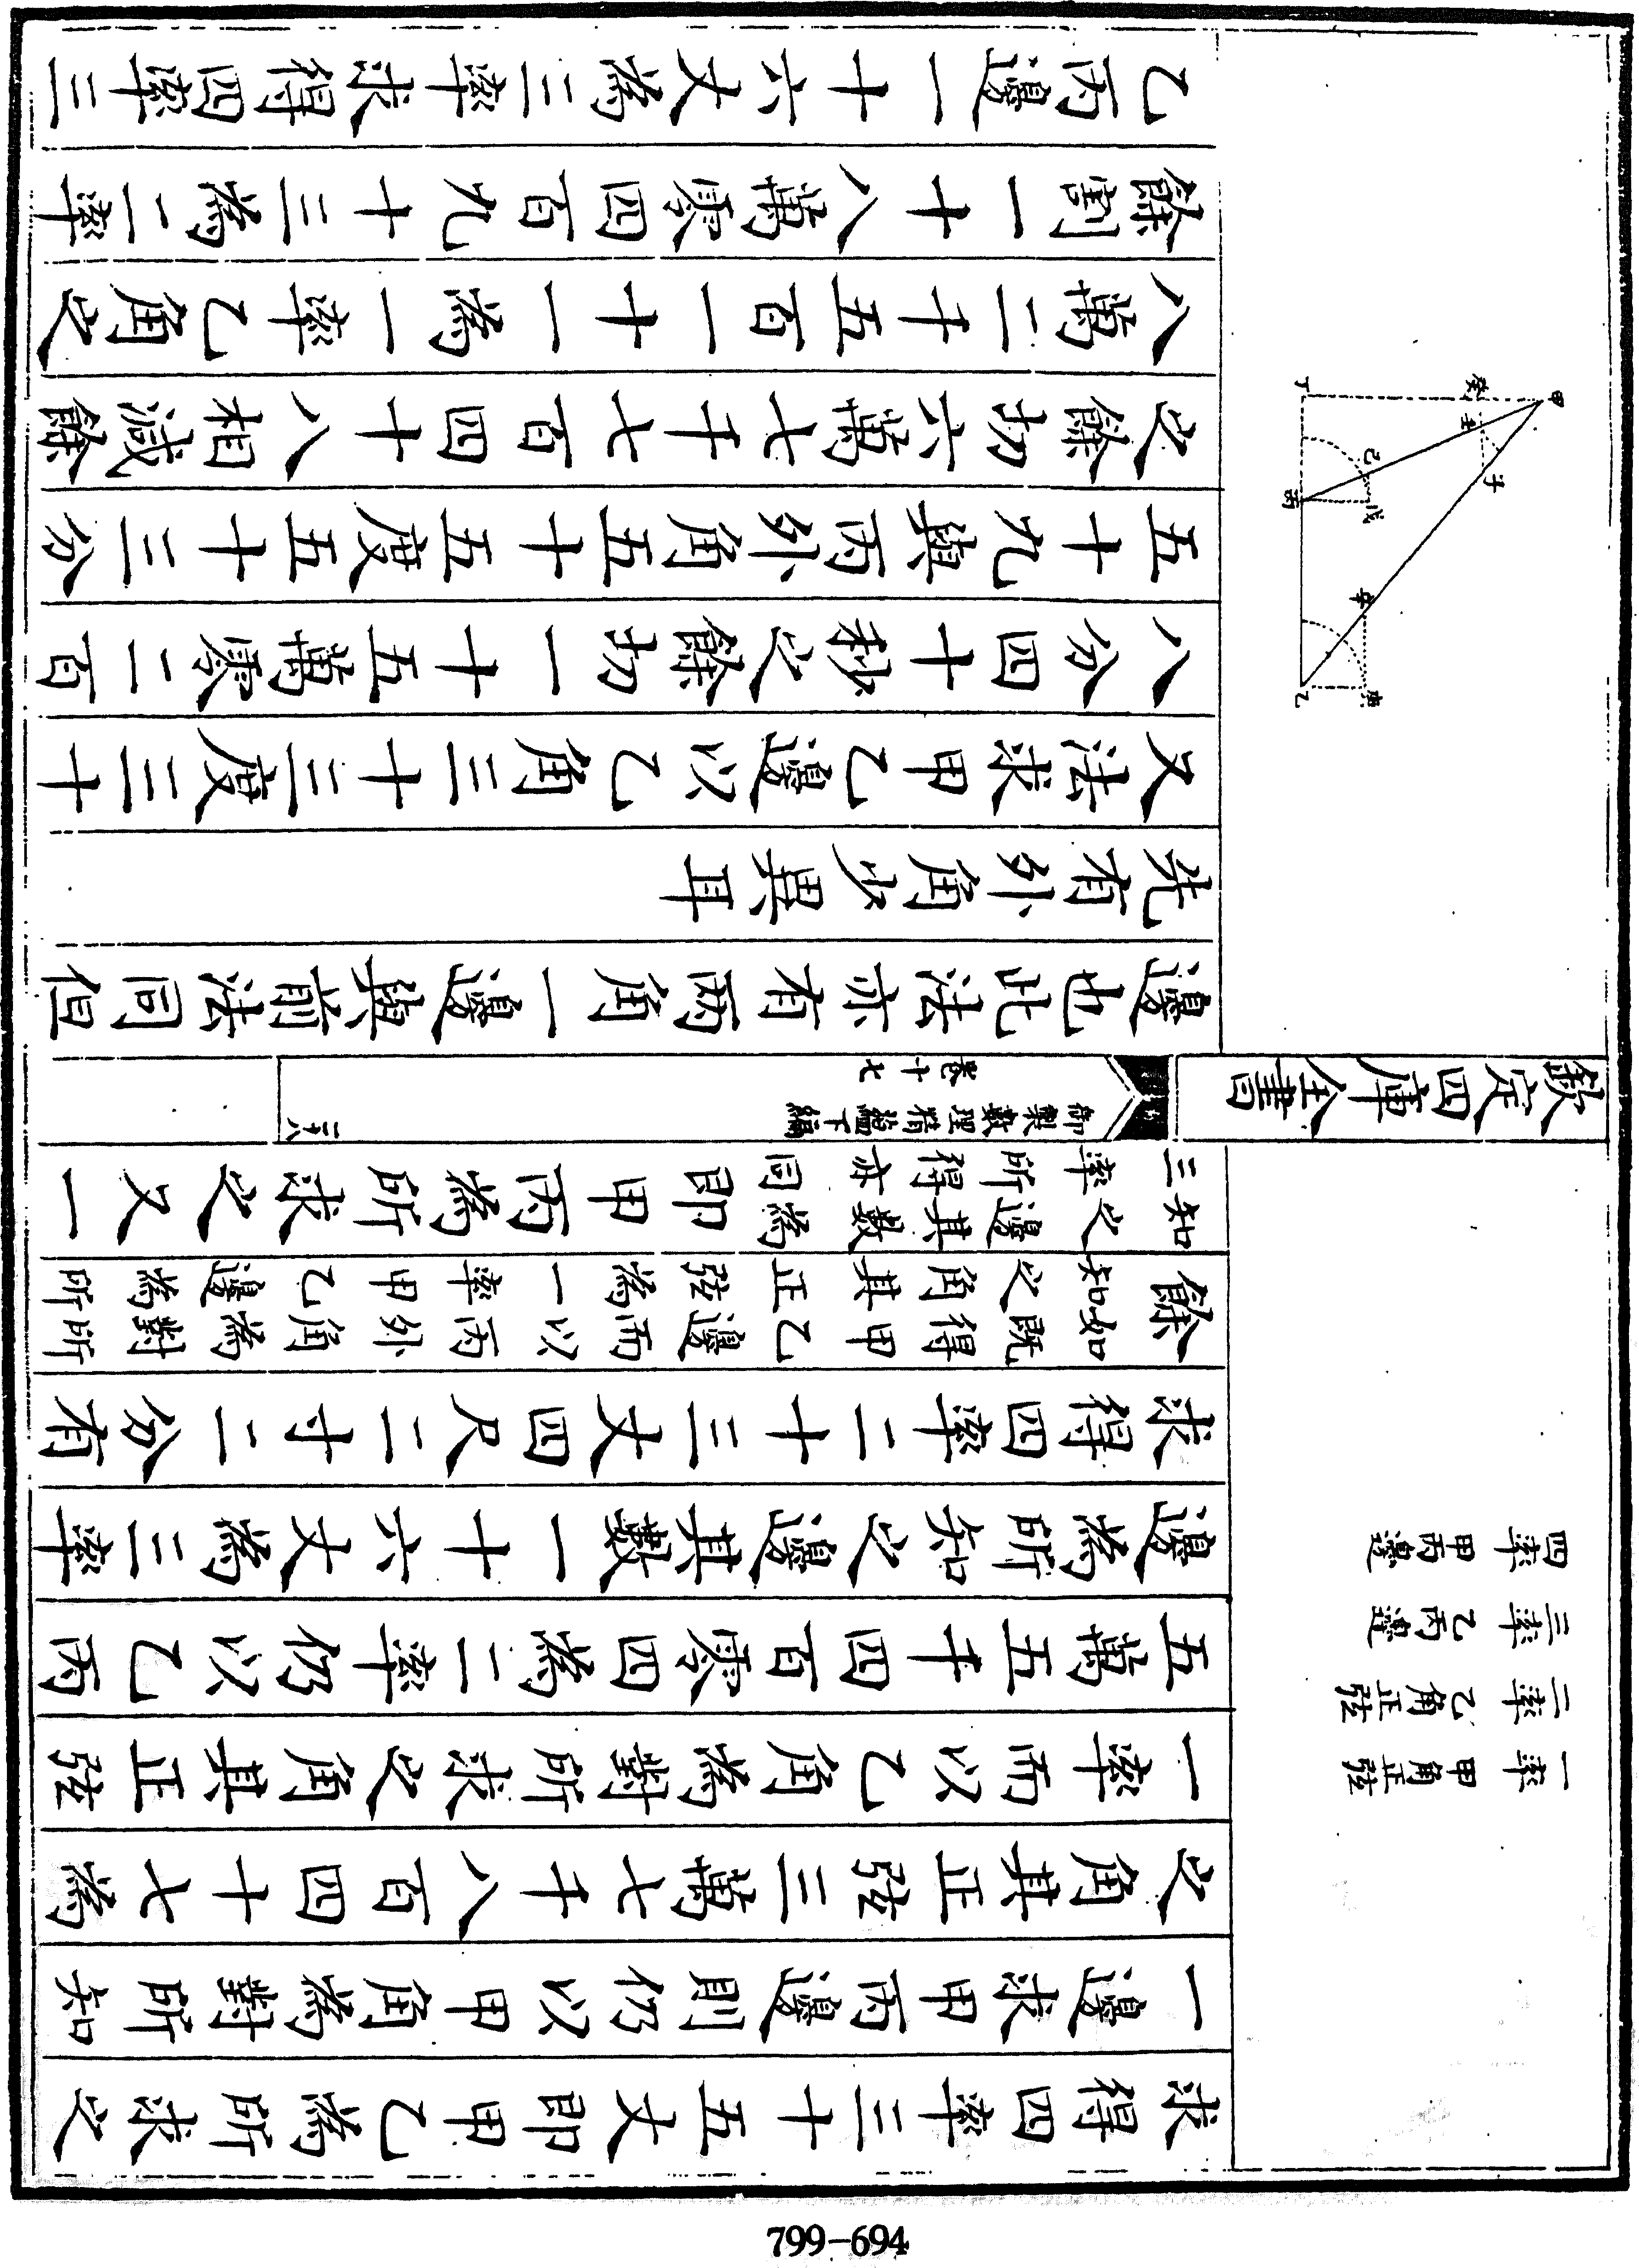 一率 甲角正弦
二率 乙角正弦
三率 乙丙邊
四率 甲丙邊
求得四率三十五丈即甲乙為所求之
一邊求甲丙邊則仍以甲角為對所知
之角其正弦三萬七千八百四十七為
一率而以乙角為對所求之角其正弦
五萬五千四百零四為二率仍以乙丙
邊為所知之邊其數一十六丈為三率
求得四率二十三丈四尺二寸二分有
餘如既得甲乙邊而以丙外角為對所
知之角其正弦為一率甲乙邊為所
知之邊其數為
三率所得亦同即甲丙為所求之又一
欽定四庫全書
御製數理精蘊下編
卷十七
邊也此法亦有兩角一邊與前法同但
先有外角少異耳
又法求甲乙邊以乙角三十三度三十
八分四十秒之餘切一十五萬零二百
五十九與丙外角五十五度五十三分
之餘切六萬七千七百四十八相減餘
八萬二千五百一十一為一率乙角之
餘割一十八萬零四百九十三為二率
乙丙邊一十六丈為三率求得四率三
甲
癸
丁
壬
子
己
戊
丙
辛
庚
乙
799-694